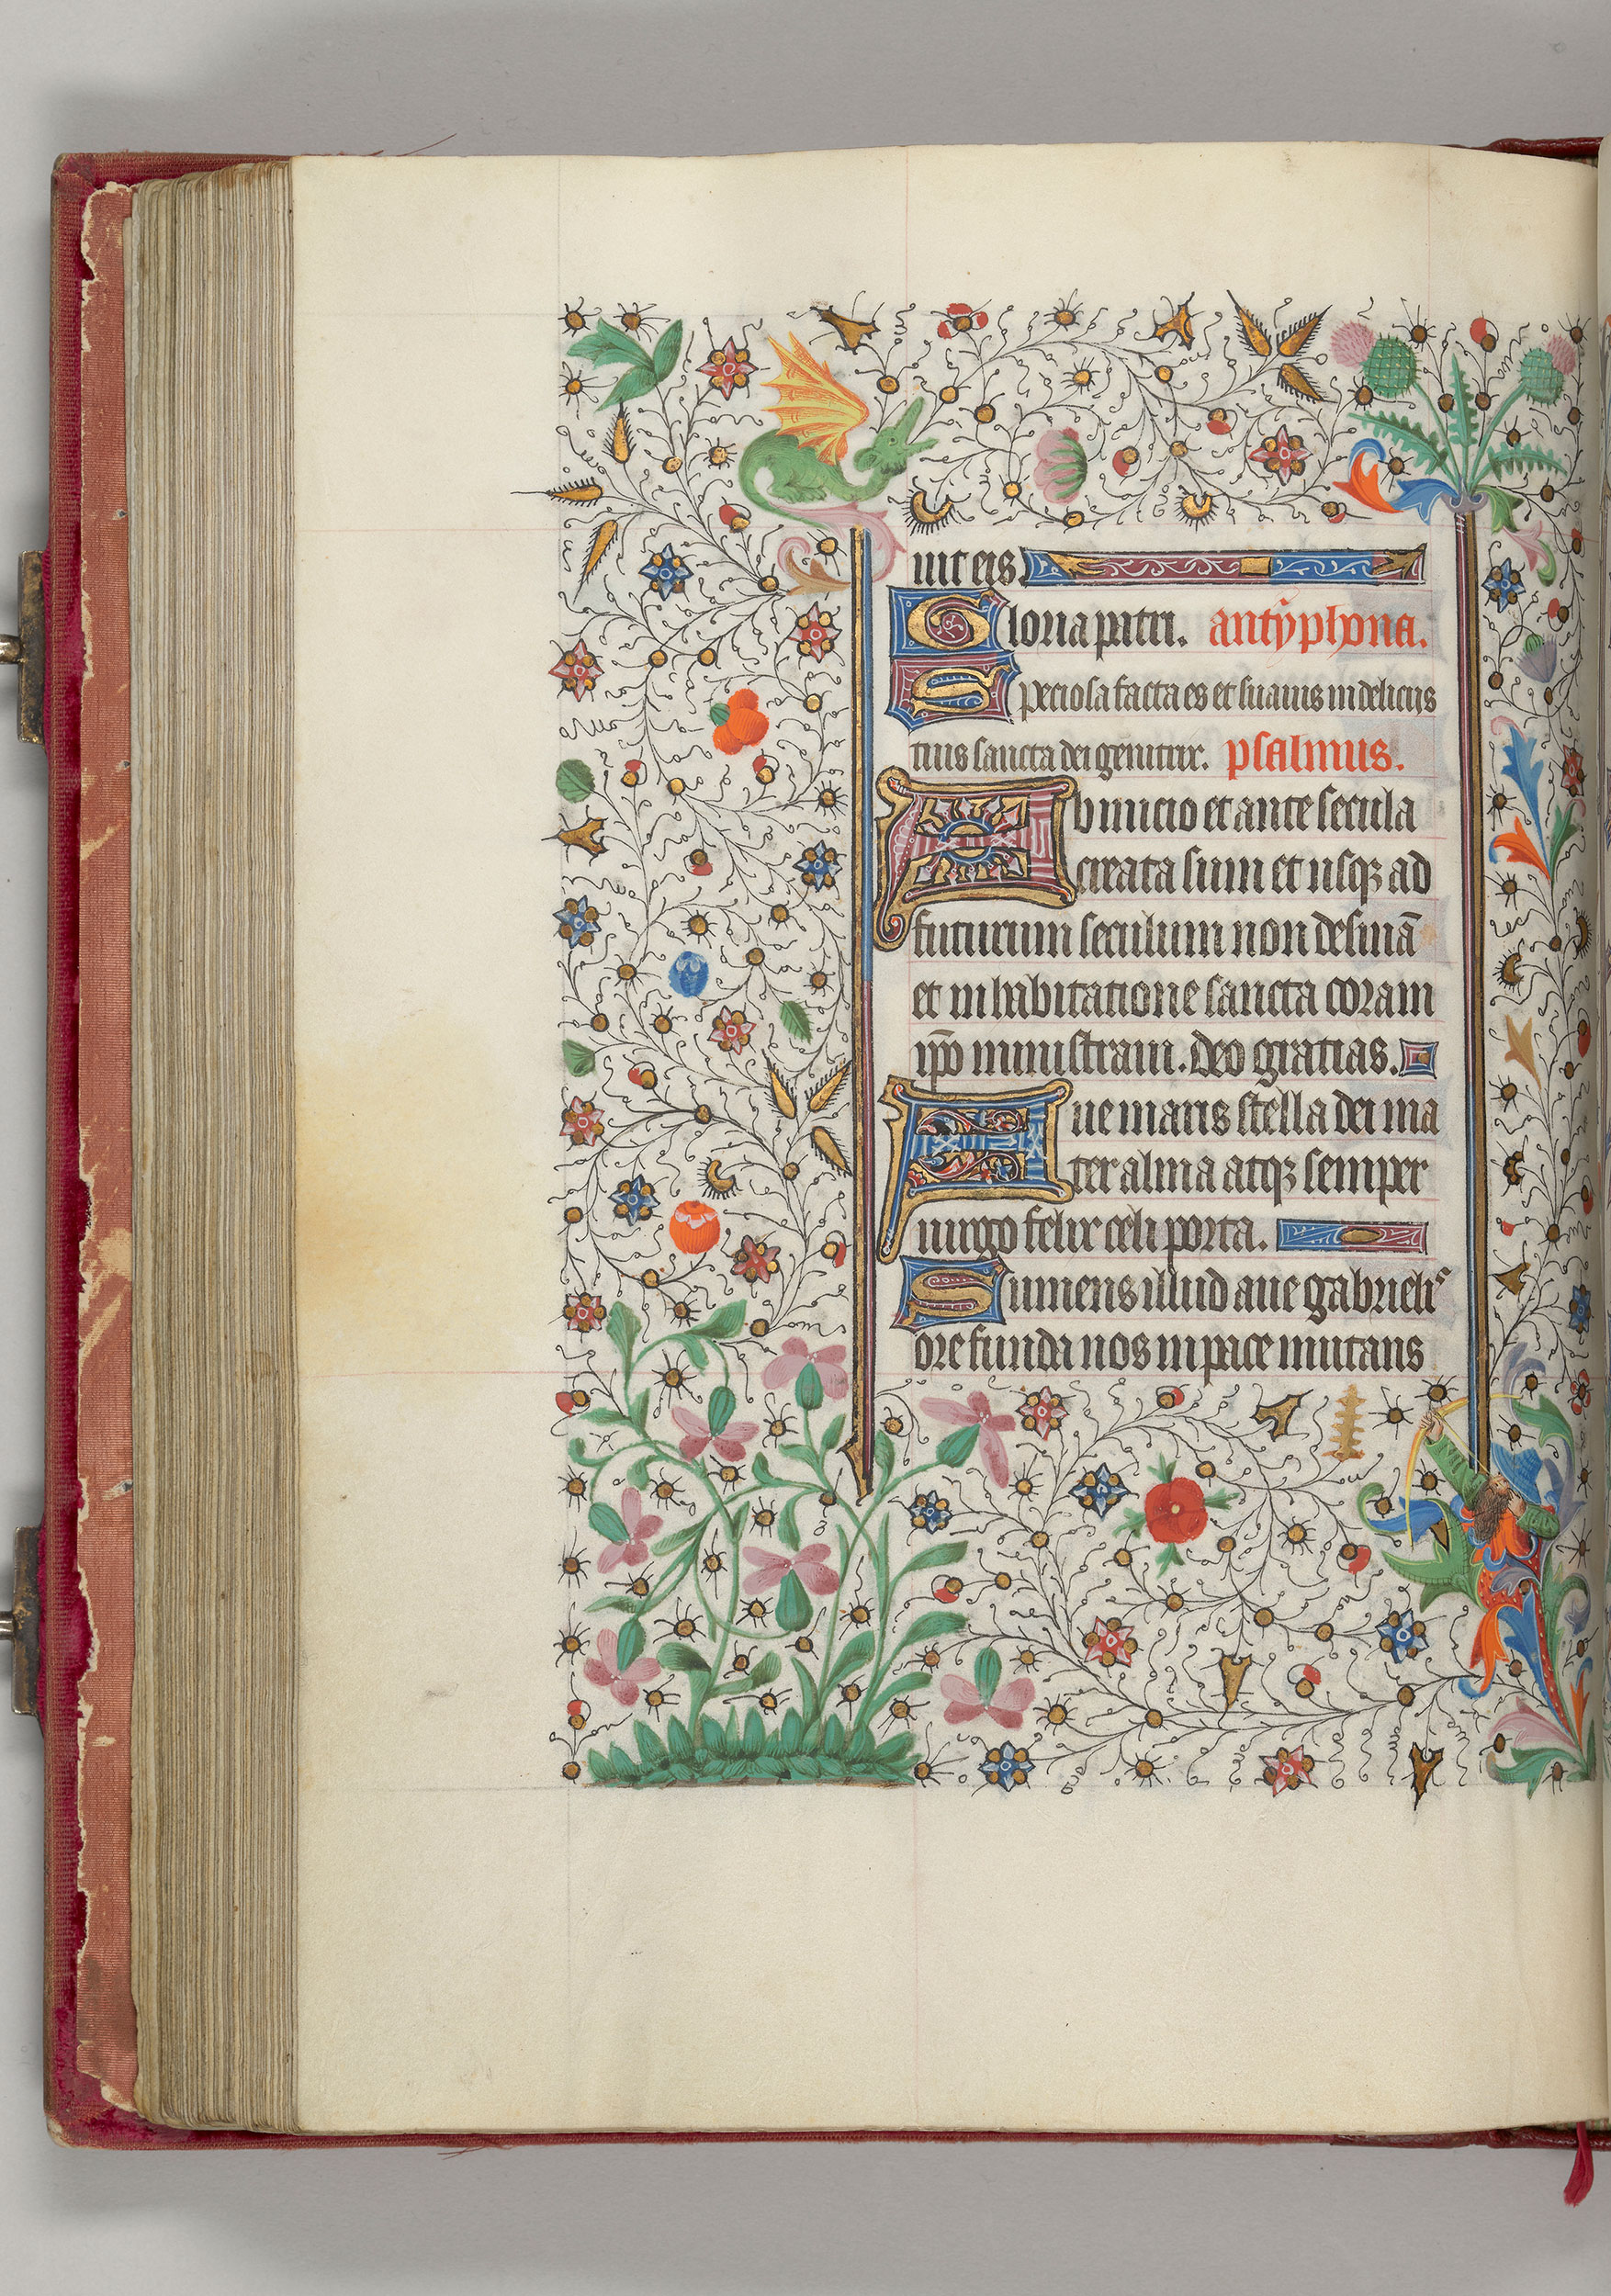 uit eis.
Gloria patri. antyphona.
Speciosa facta es et suauis in deliciis
tuis sancta dei genitrix. psalmus.
Ab inicio et ante secula
creata sum et usqꝫ ad
futurum seculum non desinā
et in habitatione sancta coram
ip̄o ministraui. deo gratias.
Aue maris stella dei ma
ter alma atqꝫ semper
uirgo felix celi porta.
Sumens illud aue gabrielis
ore funda nos in pace mutans